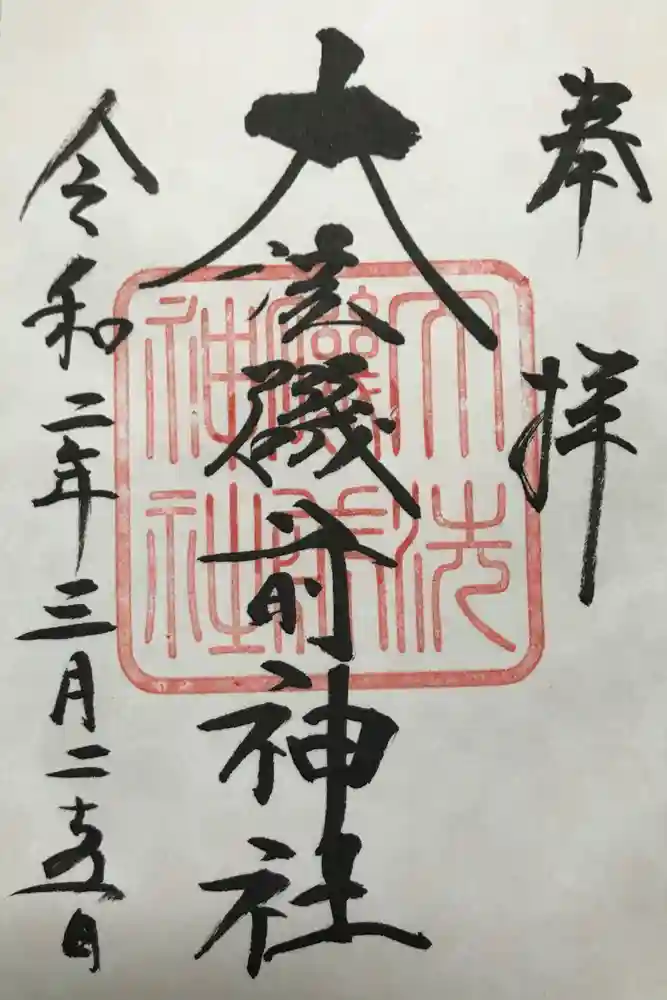 奉拝
大洗磯前神社
令和二年三月二十五日
大洗
神社